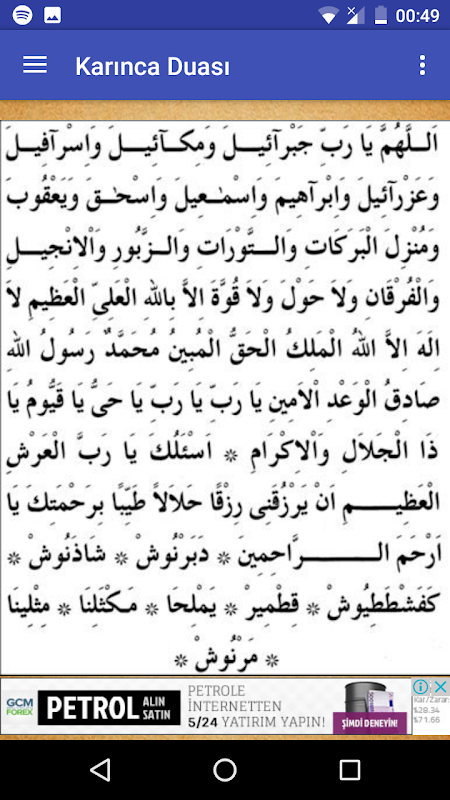 00:49
Karınca Duası
اَللّٰهُمَّ يَا رَبِّ جَبْرَآئِيلَ وَمِكَآئِيلَ وَاِسْرَٓافِيلَ
وَعَزْرَآئِيلَ وَاِبْرَآهِيمَ وَاِسْمٰعِيلَ وَاِسْحٰقَ وَيَعْقُوبَ
وَمُنْزِلَ الْبَرَكَاتِ وَالتَّوْرَاتِ وَالزَّبُورِ وَالْاِنْجِيلِ
وَالْفُرْقَانِ وَلَا حَوْلَ وَلَا قُوَّةَ اِلَّا بِاللهِ الْعَلِىِّ الْعَظِيمِ لَا
اِلَهَ اِلَّا اللهُ الْمَلِكُ الْحَقُّ الْمُبِينُ مُحَمَّدٌ رَسُولُ اللهِ
صَادِقُ الْوَعْدِ الْاَمِينِ يَا رَبِّ يَا رَبِّ يَا حَىُّ يَا قَيُّومُ يَا
ذَا الْجَلَالِ وَالْاِكْرَامِ * اَسْئَلُكَ يَا رَبَّ الْعَرْشِ
الْعَظِيمِ اَنْ يَرْزُقَنِى رِزْقًا حَلَالًا طَيِّبًا بِرَحْمَتِكَ يَا
اَرْحَمَ الرَّاحِمِينَ * دَبَرْنُوشْ * شَاذَنُوشْ *
كَفَشْطَطِيُوشْ * قِطْمِيرْ * يَمْلِحَا * مَكْثَلِنَا * مِثْلِينَا
* مَرْنُوشْ *
GCM FOREX
PETROL ALIN SATIN
PETROLE
İNTERNETTEN
5/24 YATIRIM YAPIN!
ŞİMDİ DENEYİN!
Kar/Zarar:
$28.34
$71.66